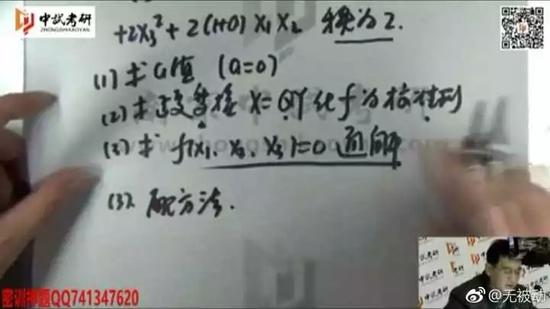 中試考研
ZHONGSHIKAOYAN
中試考研
+2x₃²+2(1+a)x₁x₂ 秩为2.
(1) 求a值 (a=0)
(2) 求正交变换 x=QY化f为标准形
(3) 求 f(x₁,x₂,x₃)=0 通解
(3). 配方法.
密训押题QQ741347620
@无被动